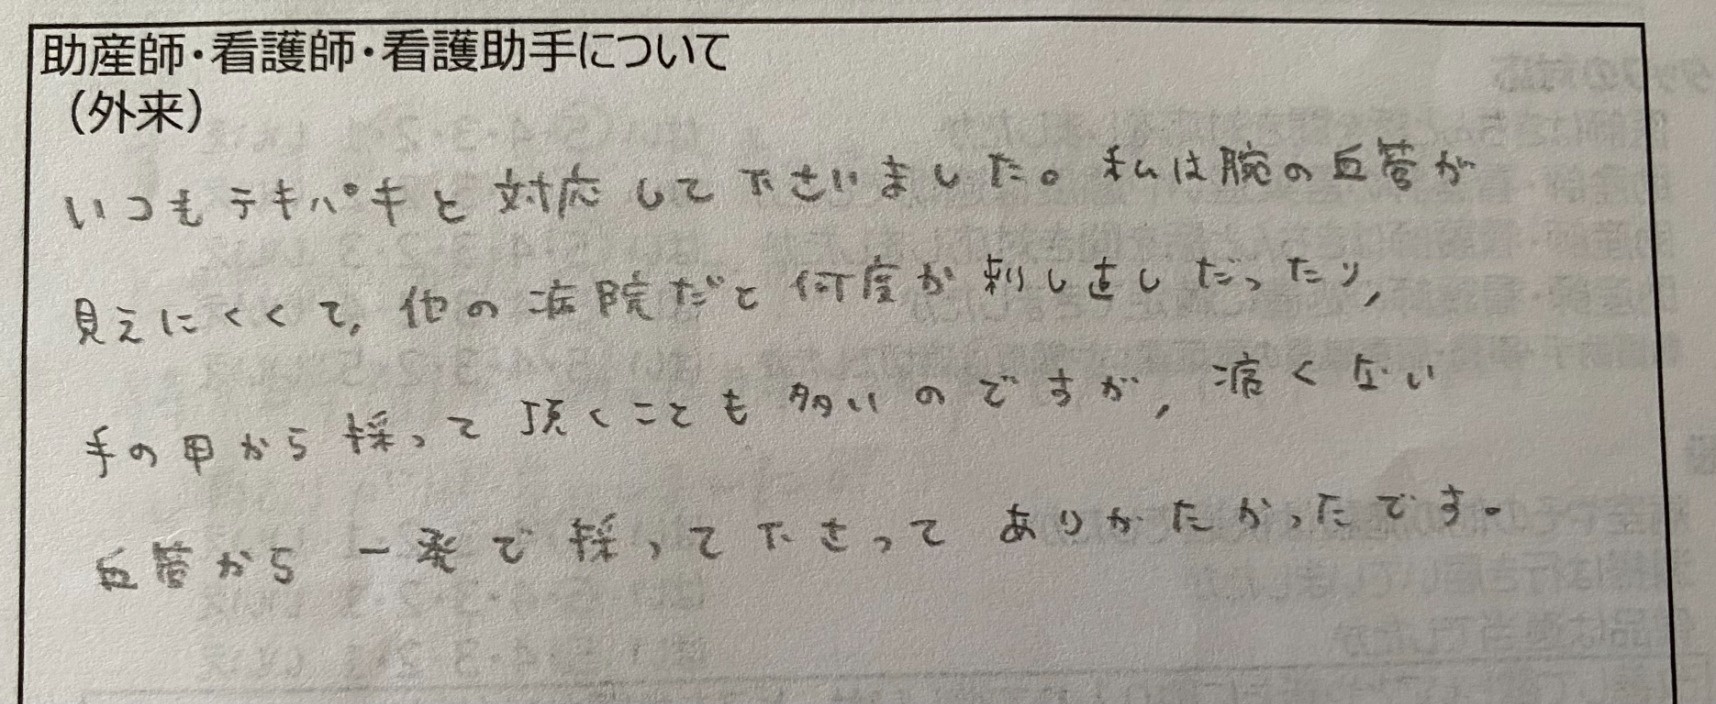 助産師・看護師・看護助手について
（外来）
いつもテキパキと対応して下さいました。私は腕の血管が
見えにくくて、他の病院だと何度か刺し直しだったり、
手の甲から採って頂くことも多いのですが、痛くない
血管から一発で採って下さってありがたかったです。